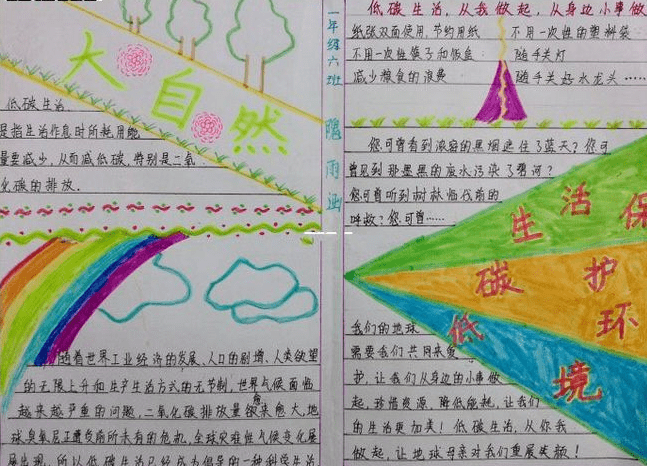 大自然
低碳生活
是指生活作息时所耗用能
量要减少,从而减低碳,特别是二氧
化碳的排放.
随着世界工业经济的发展、人口的剧增、人类欲望
的无限上升和生产生活方式的无节制,世界气候面临
越来越严重的问题,二氧化碳排放量愈来愈大,地
球臭氧层正遭受前所未有的危机,全球灾难性气候变化屡
屡出现,所以低碳生活已经成为倡导的一种科学生活
一年级六班 隋雨涵
低碳生活,从我做起,从身边小事做
纸张双面使用,节约用纸 不用一次性的塑料袋
不用一次性筷子和饭盒 随手关灯
减少粮食的浪费 随手关好水龙头……
您可曾看到浓密的黑烟遮住了蓝天?您可
曾见到那墨黑的废水污染了碧河?
您可曾听到树林临伐前的
呼救?您可曾……
低碳生活
保护环境
我们的地球
需要我们共同来爱
护,让我们从身边的小事做
起,珍惜资源、降低能耗,让我们
的生活更加美!低碳生活,从你我
做起,让地球母亲对我们重展笑颜!